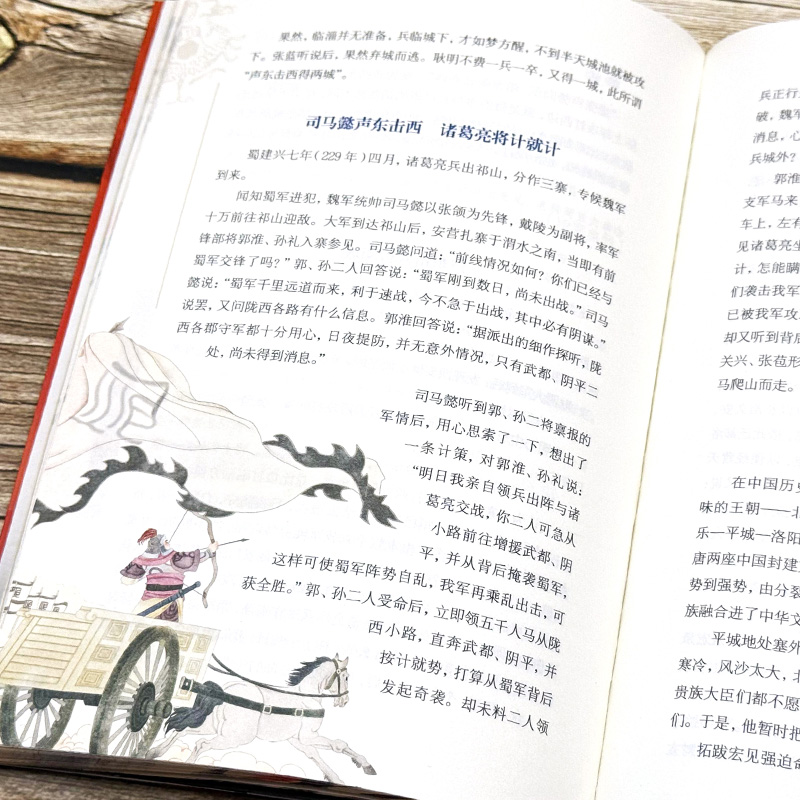 果然，临淄并无准备，兵临城下，才如梦方醒，不到半天城池就被攻
下。张蓝听说后，果然弃城而逃。耿明不费一兵一卒，又得一城，此所谓
“声东击西得两城”。
司马懿声东击西 诸葛亮将计就计
蜀建兴七年（229年）四月，诸葛亮兵出祁山，分作三寨，专候魏军
到来。
闻知蜀军进犯，魏军统帅司马懿以张颌为先锋，戴陵为副将，率军
十万前往祁山迎敌。大军到达祁山后，安营扎寨于渭水之南，当即有前
锋部将郭淮、孙礼入寨参见。司马懿问道：“前线情况如何？你们已经与
蜀军交锋了吗？”郭、孙二人回答说：“蜀军刚到数日，尚未出战。”司马
懿说：“蜀军千里远道而来，利于速战，今不急于出战，其中必有阴谋。”
说罢，又问陇西各路有什么信息。郭淮回答说：“据派出的细作探听，陇
西各郡守军都十分用心，日夜提防，并无意外情况，只有武都、阴平二
处，尚未得到消息。”
司马懿听到郭、孙二将禀报的
军情后，用心思索了一下，想出了
一条计策，对郭淮、孙礼说：
“明日我亲自领兵出阵与诸
葛亮交战，你二人可急从
小路前往增援武都、阴
平，并从背后掩袭蜀军，
这样可使蜀军阵势自乱，我军再乘乱出击，可
获全胜。”郭、孙二人受命后，立即领五千人马从陇
西小路，直奔武都、阴平，并
按计就势，打算从蜀军背后
发起奇袭。却未料二人领
兵正行
破，魏军
消息，心
兵城外？
郭淮
支军马来
车上，左右
见诸葛亮坐
计，怎能瞒
们袭击我军
已被我军攻
却又听到背后
关兴、张苞形
马爬山而走。
在中国历史
味的王朝——北
乐—平城—洛阳
唐两座中国封建
势到强势，由分裂
族融合进了中华文
平城地处塞外
寒冷，风沙太大，北
贵族大臣们都不愿
们。于是，他暂时把
拓跋宏见强迫命